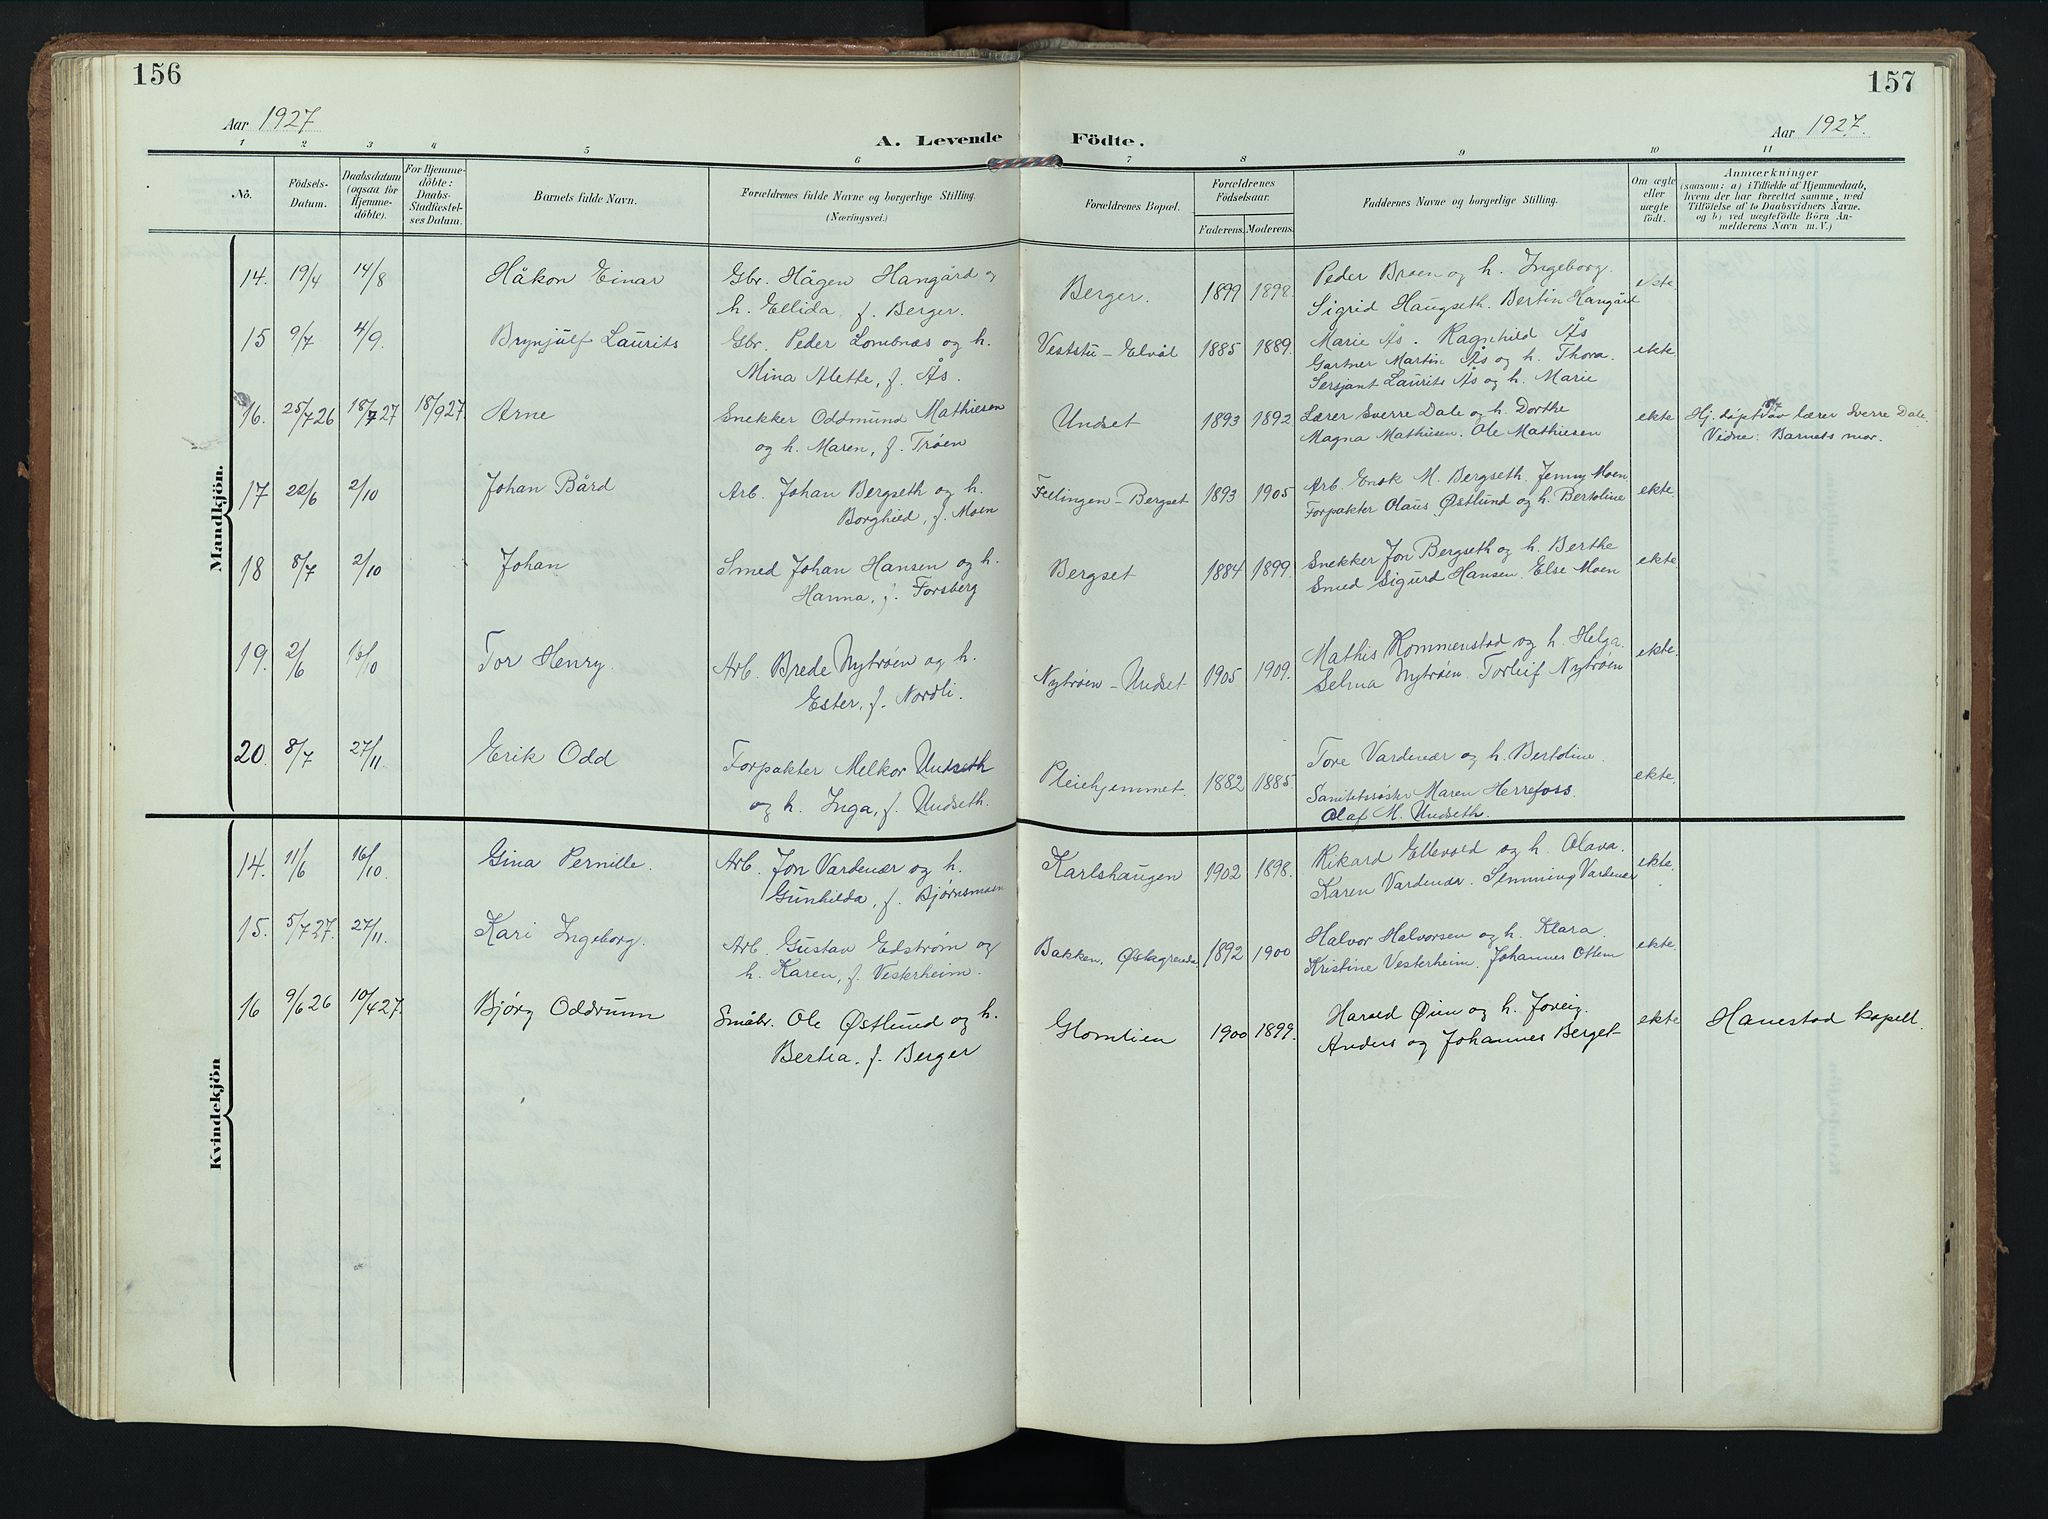 156
157
Aar 1927
A. Levende Födte.
Aar 1927.
1 2 3 4 5 6 7 8 9 10 11
No.
Födsels-
Datum.
Daabsdatum
(ogsaa for
Hjemme-
döbte).
For Hjemme-
döbte:
Daabs-
Stadfæstel-
ses Datum.
Barnets fulde Navn.
Forældrenes fulde Navne og borgerlige Stilling.
(Næringsvei.)
Forældrenes Bopæl.
Forældrenes
Födselsaar.
Faderens. Moderens.
Faddernes Navne og borgerlige Stilling.
Om ægte
eller
uægte
födt.
Anmærkninger
(saasom: a) i Tilfælde af Hjemmedaab,
hvem der har forrettet samme, med
Tilföielse af to Daabsvidners Navne.
og b) ved uægtefödte Börn An-
melderens Navn m. V.)
Mandkjön.
14. 19/4 14/8 Håkon Einar Gbr. Hågen Hangård og Berger. 1899 1898. Peder Broen og h. Ingeborg. ekte
h. Ellida, f. Berger. Sigrid Haugseth. Bertin Hangård
15 9/7 4/9. Brynjulf Laurits Gbr. Peder Lombnæs og h. Veststu - Elvål 1885 1889. Marie Ås. Ragnhild Ås ekte.
Mina Alette, f. Ås. Gartner Martin Ås og h. Thora.
Sersjant Laurits Ås og h. Marie
16. 25/7 26 18/7 27 18/9 27. Arne Snekker Oddmund Mathiesen Undset 1893 1892. Lærer Sverre Dale og h. Dorthe ekte Hj. døpt 18/7 av lærer Sverre Dale.
og h. Maren, f. Trøen Magna Mathiesen. Ole Mathiesen Vidne: Barnets mor.
17 22/6 2/10 Johan Bård Arb. Johan Bergseth og h. Fellingen - Bergset 1893 1905 Arb. Enok M. Bergseth. Jenny Moen ekte.
Borghild, f. Moen Forpakter Olaus Østlund og h. Bertoline
18 8/7 2/10 Johan Smed Johan Hansen og h. Bergset 1884 1899. Snekker Jon Bergseth og h. Berthe ekte
Hanna, f. Forsberg Smed Sigurd Hansen. Else Moen
19. 2/6 /10 Tor Henry. Arb. Brede Nytrøen og h. Nytrøen - Undset 1905 1909. Mathis Kommenstad og h. Helga. ekte.
Ester, f. Nordli. Selma Nytrøen. Torleif Nytrøen
20. 8/7 27/11. Erik Odd Forpakter Melkor Undseth Pleiehjemmet. 1882 1885. Tore Vardenær og h. Bertoline. ekte.
og h. Inga, f. Undseth. Sanitetssøster Maren Herrefoss.
Olaf M. Undseth.
Kvindekjön
14. 11/6 16/10. Gina Pernille. Arb. Jon Vardenær og h. Karlshaugen 1902 1898. Rikard Ellevold og h. Olava. ekte.
Gunhilda, f. Bjørnsmoen Karen Vardenær. Simming Vardenær
15. 5/7 27. 27/11. Kari Ingeborg. Arb. Gustav Edstrøm og Bakken, Østagrenda. 1892 1900 Halvor Halvorsen og h. Klara. ekte.
h. Karen, f. Vesterheim. Kristine Vesterheim. Johannes Ottem
16 9/6 26 10/4 27. Bjørg Oddrunn Småbr. Ole Østlund og h. Glomlien 1900 1899. Harald Øien og h. ekte Hanestad kapell.
Bertea, f. Berger Anders og Johannes Berget